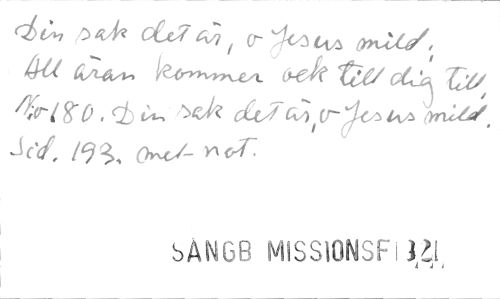 Din sak det är, o Jesus mild;
All äran kommer ock till dig till,
No 180. Din sak det är, o Jesus mild.
Sid. 193. met not.
SÅNGB MISSIONSF 1321